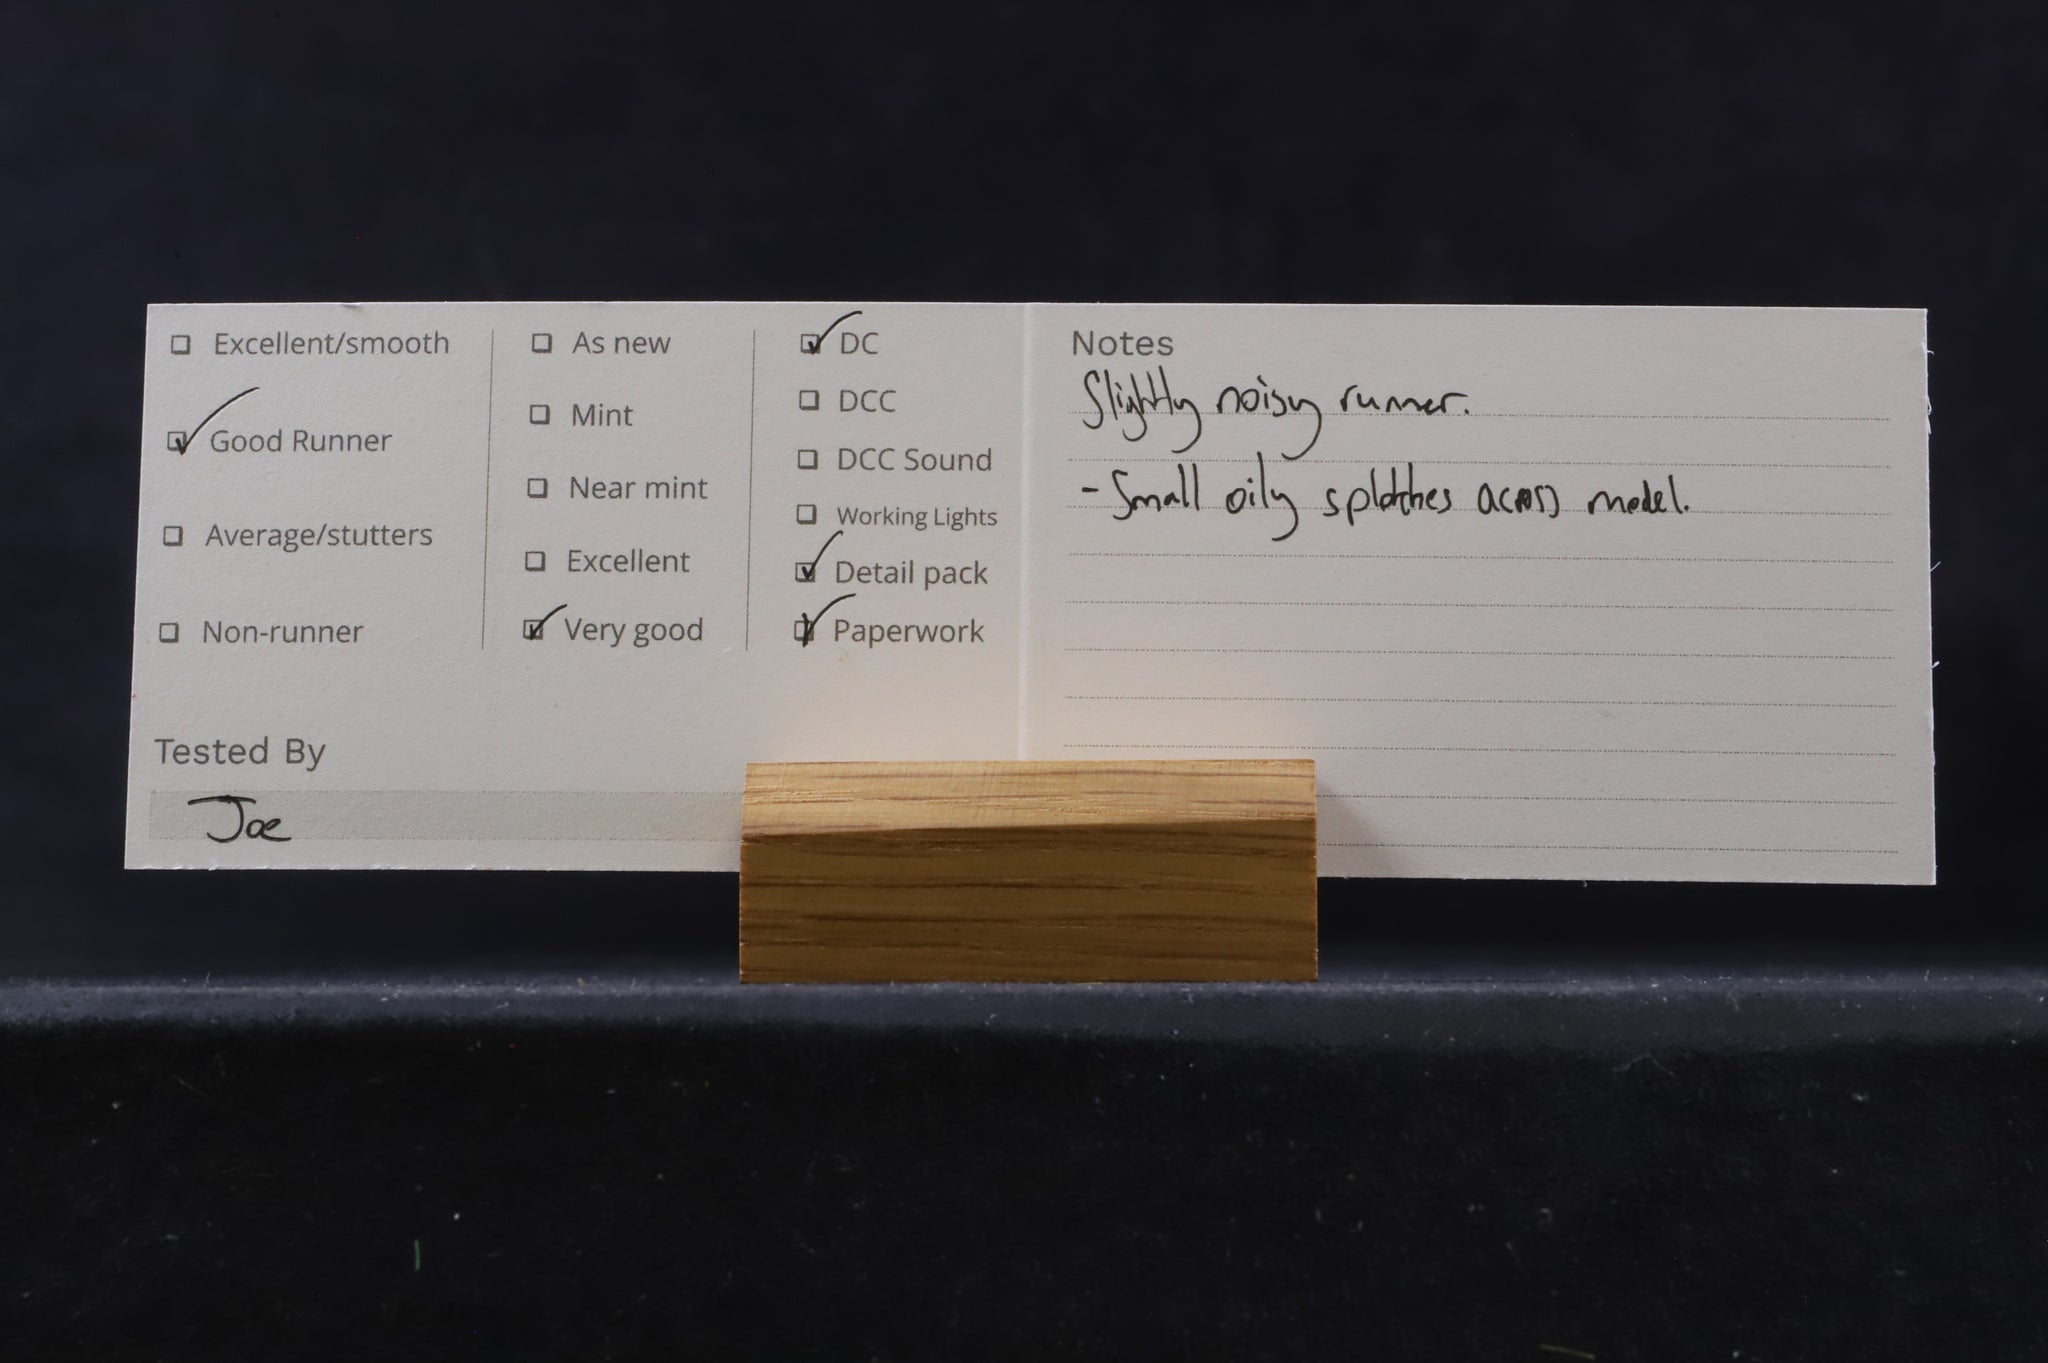 Excellent/smooth
Good Runner
Average/stutters
Non-runner
As new
Mint
Near mint
Excellent
Very good
DC
DCC
DCC Sound
Working Lights
Detail pack
Paperwork
Tested By
Joe
Notes
Slightly noisy runner.
- Small oily splotches across model.